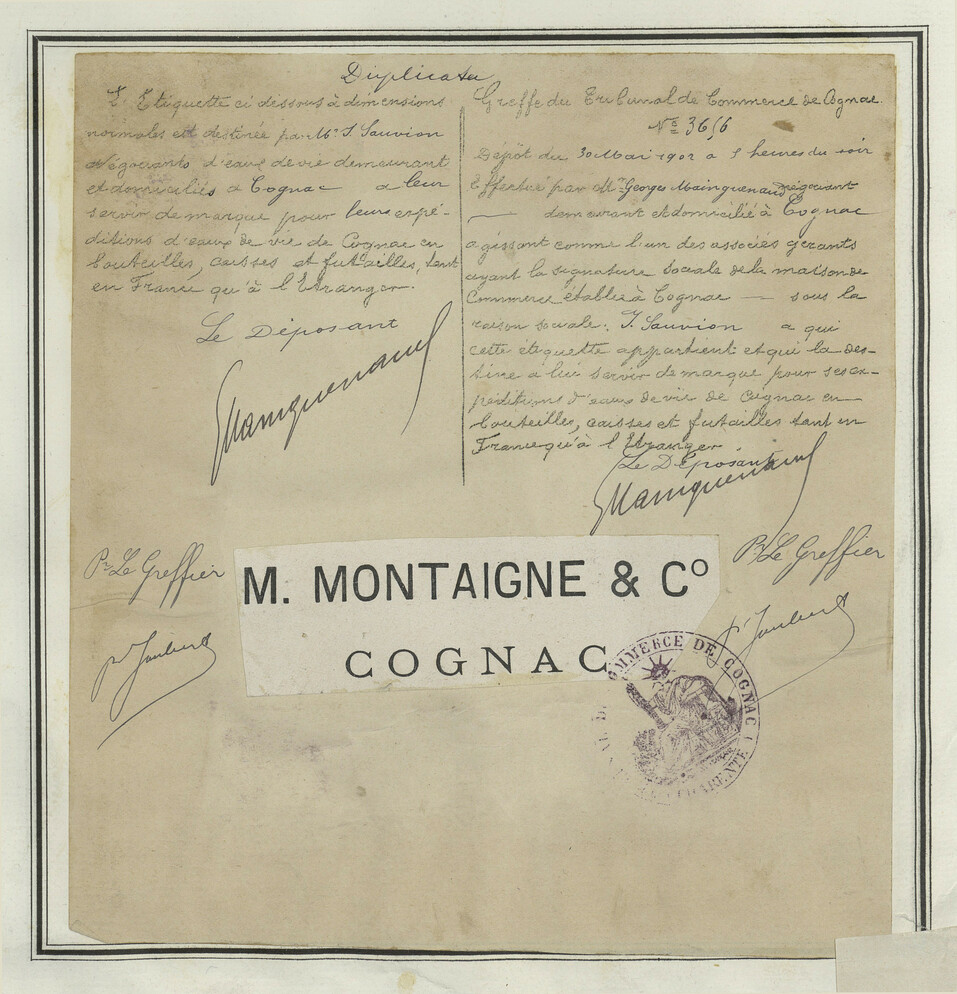 Duplicata
L'Etiquette ci dessous à dimensions
normales est destinée par Mrs J. Sauvion
Négociants d'eaux de vie demeurant
et domiciliés à Cognac à leur
servir de marque pour leurs expé-
ditions d'eaux de vie de Cognac en
bouteilles, caisses et futailles, tant
en France qu'à l'Etranger.
Le Déposant
GMainguenaud
Greffe du Tribunal de Commerce de Cognac.
Dépôt du 30 Mai 1902 à heures du soir
Effectué par Mr Georges Mainguenaud négociant
— demeurant et domicilié à Cognac
agissant comme l'un des associés gérants
ayant la signature sociale de la maison de
Commerce établie à Cognac — sous la
raison sociale: J. Sauvion à qui
cette étiquette appartient et qui la des-
tine à lui servir de marque pour ses ex-
péditions d'eaux de vie de Cognac en
bouteilles, caisses et futailles tant en
France qu'à l'Etranger
Le Déposant
GMainguenaud
Pr Le Greffier
Pr Le Greffier
M. MONTAIGNE & Cº
COGNAC
COMMERCE DE COGNAC
CHARENTE